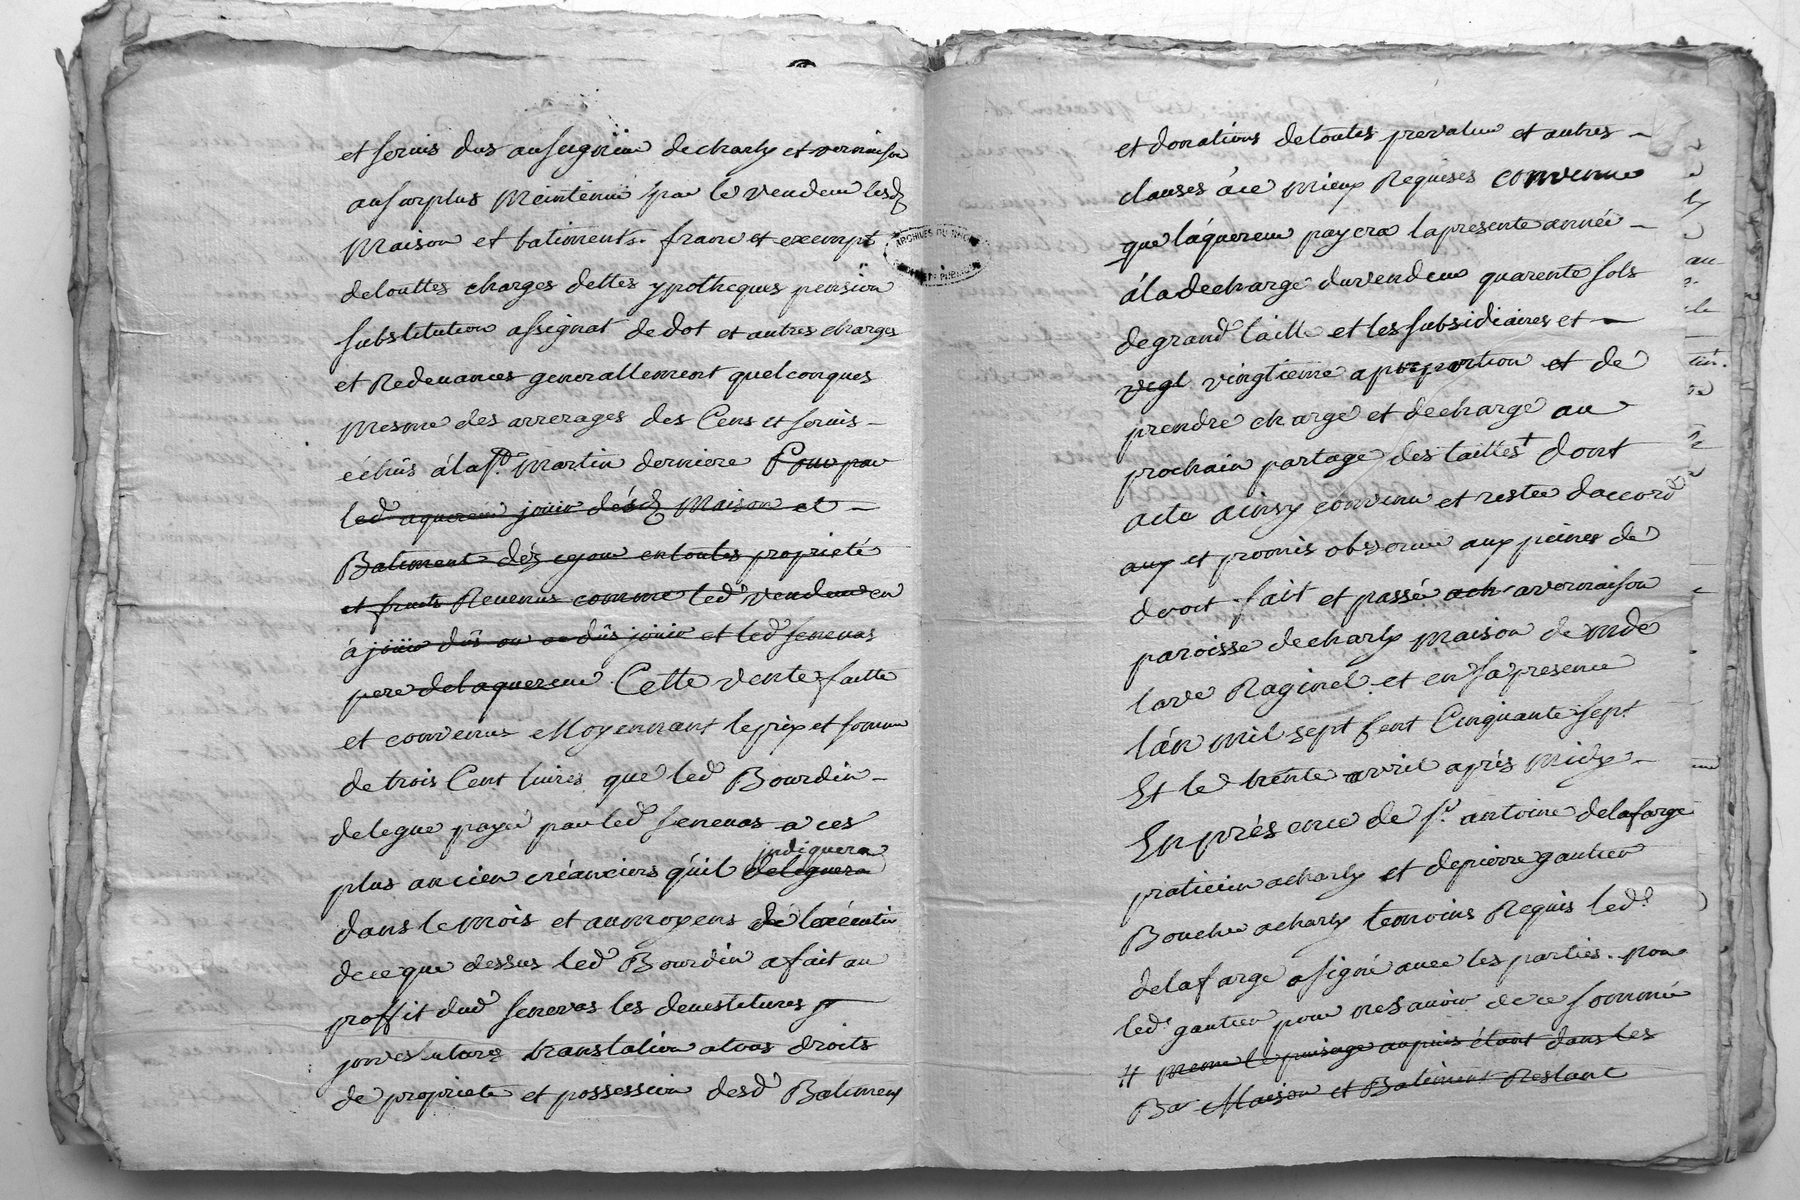 et servis dus au seigneur de charly et vernaison
au surplus Meintenüe par le vendeur lesd
Maison et batiments franc et exempt
de touttes charges dettes ypotheques pension
substitution assignat de dot et autres charges
et Redevances generallement quelconques
Mesme des arrerages des Cens et servis
échûs á la st Martin derniere Pour par
led aquereur joüir désd Maison et
Batiment dés ce jour en toutes proprieté
et fruits Revenus comme led vendeur en
á joüir dûs ou dûs joüir et led senevas
pere de laquereur Cette vente faitte
et convenus Moyennant le prix et somme
de trois Cent livres que led Bourdin
delegue payer par led senevas a ces
plus ancien créanciers qúil delequera indiquera
dans le mois et au moyens dé lexécution
de ce que dessus led Bourdin a fait au
proffit dud senevas les devestitures
jnvestitures translation atous droits
de propriete et possession desd Batiment
ARCHIVES DU RHONE
et donations de toutes prevalue et autres
clauses á ce mieux Requises convenu
que láquereur payera la presente année
á la decharge du vendeur quarente sols
de grand taille et les subsidiaires et
vigt vingtieme a proportion et de
prendre charge et decharge au
prochain partage des tailles + dont
acte ainsy convenu et restée daccord
aux et promis observer aux peines de
droit fait et passé a vernaison
paroisse de charly Maison de mde
lave Raginel et en sa presence
lán mil sept Cent Cinquante sept
Et le trente avril aprés midy
En présence de sr. antoine delafarge
praticien a charly et de pierre gautier
Boucher a charly temoins Requis led.
delafarge a signé avec les parties non
led. gautier pour ne savoir de ce sommé
# meme le puisage au puis étant dans les
Ba Maison et Batiment Restant